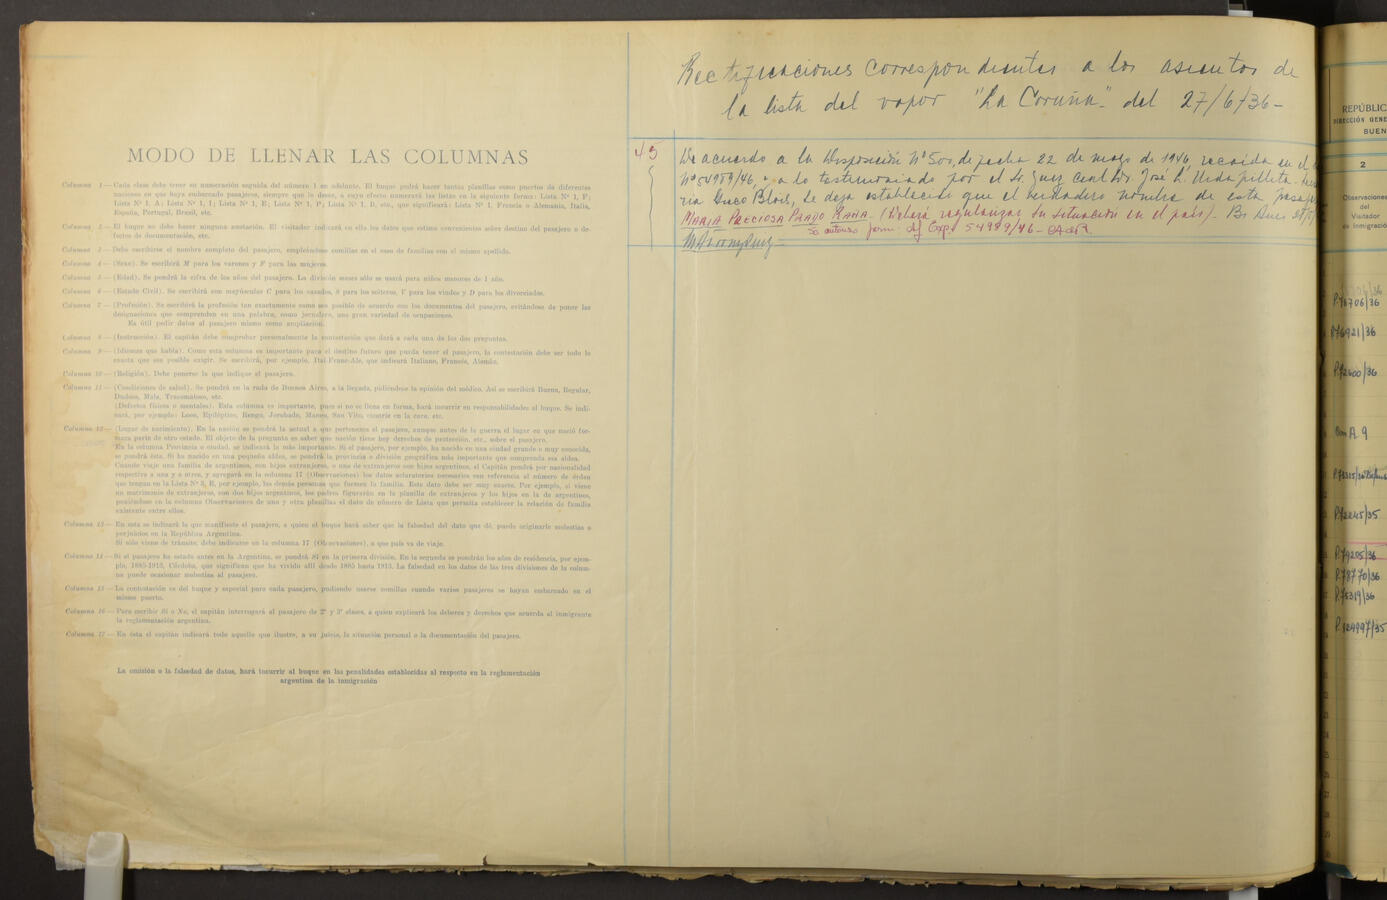 MODO DE LLENAR LAS COLUMNAS
Columna 1 — Cada clase debe tener su numeración seguida del número 1 en adelante. El buque podrá hacer tantas planillas como puertos de diferentes
naciones en que haya embarcado pasajeros, siempre que lo desee, a cuyo efecto numerará las listas en la siguiente forma: Lista Nº 1, F;
Lista Nº 1, A; Lista Nº 1, I; Lista Nº 1, E; Lista Nº 1, P; Lista Nº 1, B, etc., que significará: Lista Nº 1, Francia o Alemania, Italia,
España, Portugal, Brasil, etc.
Columna 2 — El buque no debe hacer ninguna anotación. El visitador indicará en ella los datos que estime convenientes sobre destino del pasajero o de-
fectos de documentación, etc.
Columna 3 — Debe escribirse el nombre completo del pasajero, empleándose comillas en el caso de familias con el mismo apellido.
Columna 4 — (Sexo). Se escribirá M para los varones y F para las mujeres.
Columna 5 — (Edad). Se pondrá la cifra de los años del pasajero. La división meses sólo se usará para niños menores de 1 año.
Columna 6 — (Estado Civil). Se escribirá con mayúsculas C para los casados, S para los solteros, V para los viudos y D para los divorciados.
Columna 7 — (Profesión). Se escribirá la profesión tan exactamente como sea posible de acuerdo con los documentos del pasajero, evitándose de poner las
designaciones que comprenden en una palabra, como jornalero, una gran variedad de ocupaciones.
Es útil pedir datos al pasajero mismo como ampliación.
Columna 8 — (Instrucción). El capitán debe comprobar personalmente la contestación que dará a cada una de las dos preguntas.
Columna 9 — (Idiomas que habla). Como esta columna es importante para el destino futuro que pueda tener el pasajero, la contestación debe ser todo lo
exacta que sea posible exigir. Se escribirá, por ejemplo, Ital-Franc-Ale, que indicará Italiano, Francés, Alemán.
Columna 10 — (Religión). Debe ponerse la que indique el pasajero.
Columna 11 — (Condiciones de salud). Se pondrá en la rada de Buenos Aires, a la llegada, pidiéndose la opinión del médico. Así se escribirá Buena, Regular,
Dudosa, Mala, Tracomatoso, etc.
(Defectos físicos o mentales). Esta columna es importante, pues si no se llena en forma, hará incurrir en responsabilidades al buque. Se indi-
cará, por ejemplo: Loco, Epiléptico, Rengo, Jorobado, Manco, San Vito, cicatriz en la cara, etc.
Columna 12 — (Lugar de nacimiento). En la nación se pondrá la actual a que pertenezca el pasajero, aunque antes de la guerra el lugar en que nació for-
mara parte de otro estado. El objeto de la pregunta es saber que nación tiene hoy derechos de protección, etc., sobre el pasajero.
En la columna Provincia o ciudad, se indicará la más importante. Si el pasajero, por ejemplo, ha nacido en una ciudad grande o muy conocida,
se pondrá ésta. Si ha nacido en una pequeña aldea, se pondrá la provincia o división geográfica más importante que comprenda esa aldea.
Cuando viaje una familia de argentinos, con hijos extranjeros, o una de extranjeros con hijos argentinos, el Capitán pondrá por nacionalidad
respectiva a una y a otros, y agregará en la columna 17 (Observaciones) los datos aclaratorios necesarios con referencia al número de orden
que tengan en la Lista Nº 3, E, por ejemplo, las demás personas que formen la familia. Este dato debe ser muy exacto. Por ejemplo, si viene
un matrimonio de extranjeros, con dos hijos argentinos, los padres figurarán en la planilla de extranjeros y los hijos en la de argentinos,
poniéndose en la columna Observaciones de una y otra planillas el dato de número de Lista que permita establecer la relación de familia
existente entre ellos.
Columna 13 — En esta se indicará lo que manifieste el pasajero, a quien el buque hará saber que la falsedad del dato que dé, puede originarle molestias o
perjuicios en la República Argentina.
Si sólo viene de tránsito, debe indicarse en la columna 17 (Observaciones), a que país va de viaje.
Columna 14 — Si el pasajero ha estado antes en la Argentina, se pondrá Si en la primera división. En la segunda se pondrán los años de residencia, por ejem-
plo, 1885-1913, Córdoba, que significan que ha vivido allí desde 1885 hasta 1913. La falsedad en los datos de las tres divisiones de la colum-
na puede ocasionar molestias al pasajero.
Columna 15 — La contestación es del buque y especial para cada pasajero, pudiendo usarse comillas cuando varios pasajeros se hayan embarcado en el
mismo puerto.
Columna 16 — Para escribir Si o No, el capitán interrogará al pasajero de 2ª y 3ª clases, a quien explicará los deberes y derechos que acuerda al inmigrante
la reglamentación argentina.
Columna 17 — En ésta el capitán indicará todo aquello que ilustre, a su juicio, la situación personal o la documentación del pasajero.
La omisión o la falsedad de datos, hará incurrir al buque en las penalidades establecidas al respecto en la reglamentación
argentina de la inmigración
Rectificaciones correspondientes a los asientos de
la lista del vapor "La Coruña" del 27/6/36-
45
De acuerdo a la Disposición Nº 500, de fecha 22 de mayo de 1946, recaída en el
Nº 54989/46, y a lo testimoniado por el Sr. Juez Civil Dr. José
se deja establecido que el verdadero nombre de esta
MARIA PRECIOSA PRADO (Deberá regularizar su situación en el país)- Bs Aires
Exp. 54989/46-
REPÚBLIC
DIRECCIÓN GENE
BUEN
2
Observaciones
del
Visitador
de Inmigració
P.76706/36
P.76921/36
P.72600/36
Con A 9
P.72245/35
P.79205/36
P.78770/36
P.75319/36
P.124997/35